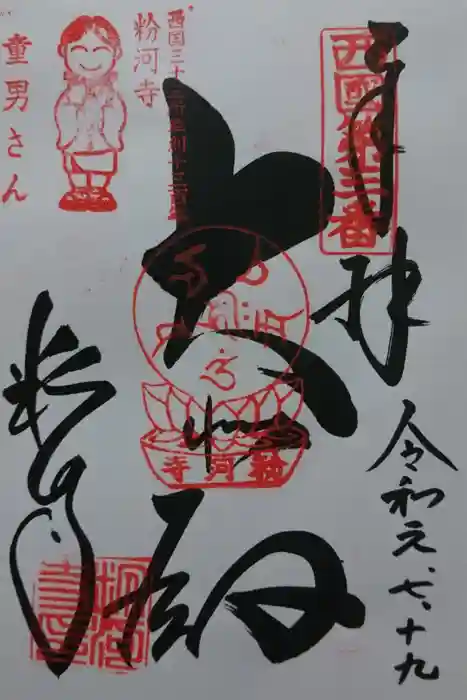 奉拝
令和元、七、十九
西國第三番
大悲殿
粉河寺
粉河寺
西国三十三所草創千三百年
粉河寺
童男さん